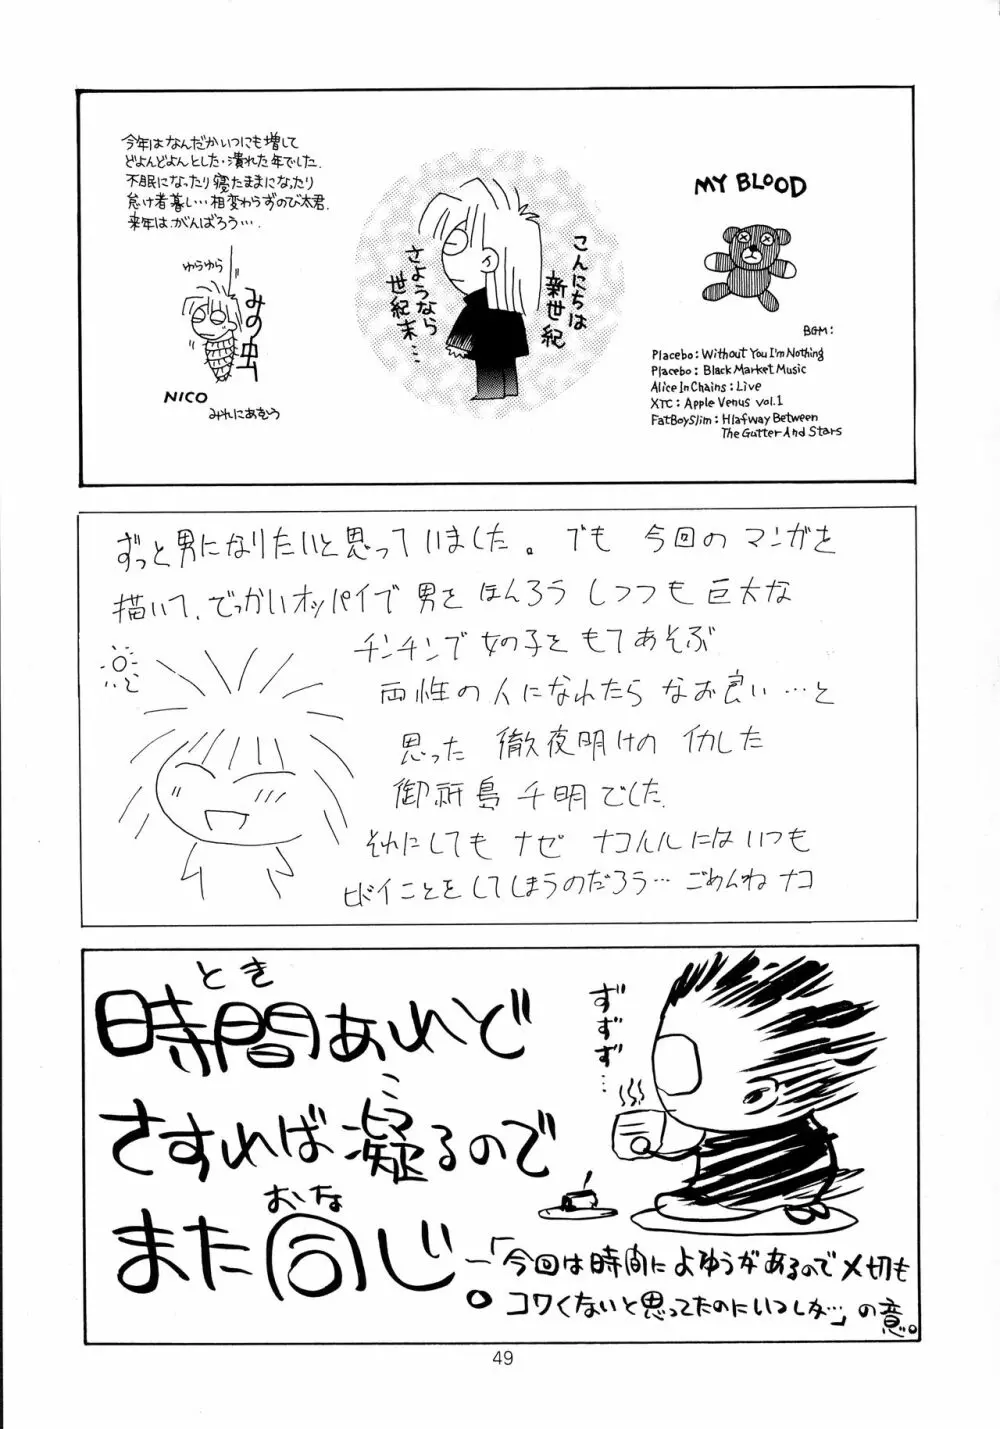 今年はなんだかいつにも増して
どよんどよんとした・潰れた年でした.
不眠になったり寝たままになったり
怠け者暮し…相変わらずのび太君.
来年は、がんばろう….
ゆらゆら
みの虫
NICO
みれにあむう
こんにちは
新世紀
さようなら
世紀末…
MY BLOOD
BGM:
Placebo: Without You I'm Nothing
Placebo: Black Market Music
Alice In Chains: Live
XTC: Apple Venus vol.1
FatBoySlim: Hlafway Between
The Gutter And Stars
ずっと男になりたいと思っていました。でも 今回の マンガを
描いて、でっかいオッパイで 男を ほんろう しつつも 巨大な
チンチンで 女の子を もてあそぶ
両性の 人に なれたら なお良い…と
思った 徹夜明けの イカした
御祈島 千明でした.
それにしても ナゼ ナコルルには いつも
ヒドイことをしてしまうのだろう… ごめんね ナコ
とき
時間あれど
さすれば凝るので
こ
また同じ
おな
。
ずずず…
―「今回は時間に よゆうが あるので〆切も
コワくないと思ってたのにいつしか…」の意。
49